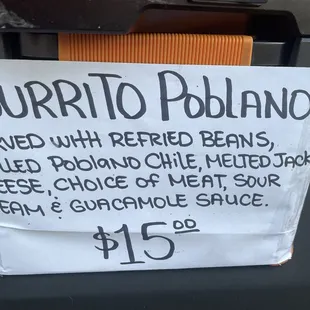 BURRITO PoblANO
RVED WITH REFRIED BEANS,
LLED PoblANO CHILE, MELTED JACK
EESE, CHOICE OF MEAT, SOUR
EAM & GUACAMOLE SAUCE.
$15.00